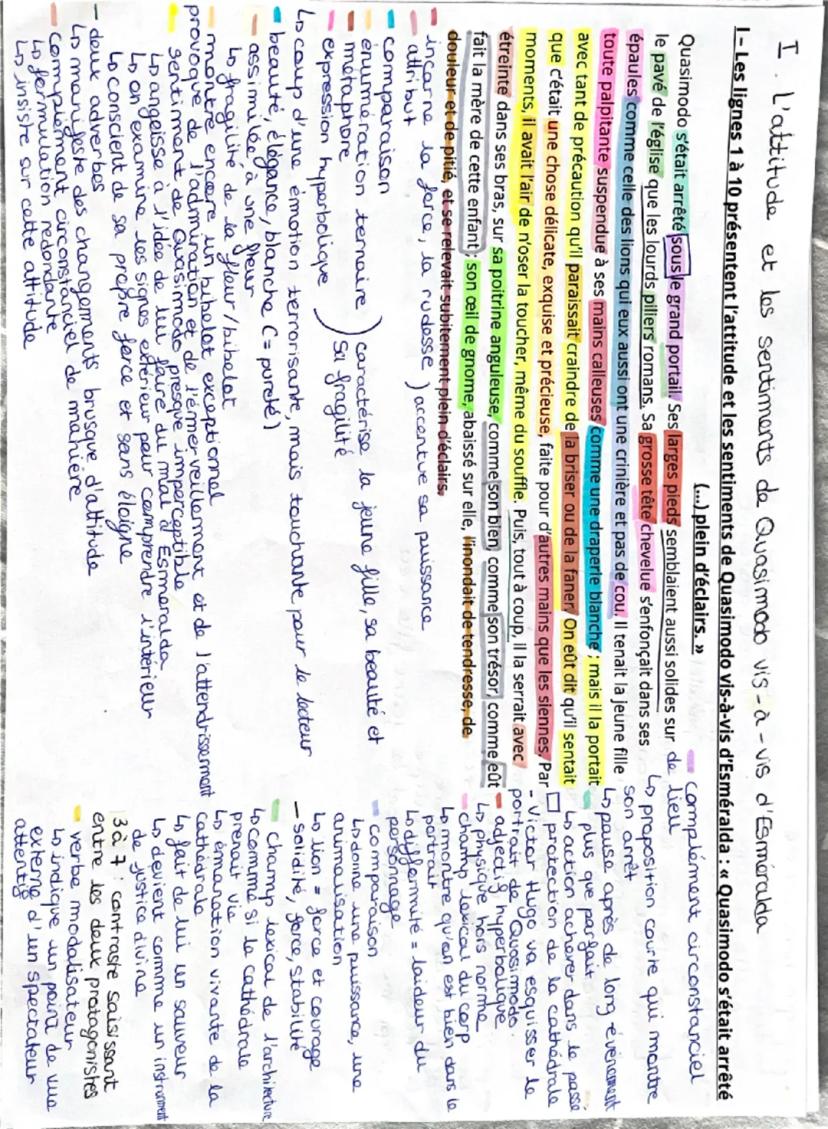 I. L'attitude et les sentiments de Quasimodo vis-à-vis d'Esméralda
I – Les lignes 1 à 10 présentent l'attitude et les sentiments de Quasimodo vis-à-vis d'Esméralda : « Quasimodo s'était arrêté
(...) plein d'éclairs. »
Quasimodo s'était arrêté sous le grand portail. Ses larges pieds semblaient aussi solides sur
le pavé de l'église que les lourds piliers romans. Sa grosse tête chevelue s'enfonçait dans ses
épaules comme celle des lions qui eux aussi ont une crinière et pas de cou. Il tenait la jeune fille
toute palpitante suspendue à ses mains calleuses comme une draperie blanche ; mais il la portait
avec tant de précaution qu'il paraissait craindre de la briser ou de la faner. On eût dit qu'il sentait
que c'était une chose délicate, exquise et précieuse, faite pour d'autres mains que les siennes. Par
moments, il avait l'air de n'oser la toucher, même du souffle. Puis, tout à coup, il la serrait avec
étreinte dans ses bras, sur sa poitrine anguleuse, comme son bien, comme son trésor, comme eût
fait la mère de cette enfant ; son œil de gnome, abaissé sur elle, l'inondait de tendresse, de
douleur et de pitié, et se relevait subitement plein d'éclairs.
complément circonstanciel
de lieu
↳ proposition courte qui montre
son arrêt
↳ pause après de long événement
plus que parfait
↳ action achever dans le passé
protection de la cathédrale
- Victor Hugo va esquisser le
portrait de Quasimodo.
adjectif hyperbolique
↳ physique hors norme
champ lexical du corp
↳ montre qu'on est bien dans le
portrait
↳ difformité = laideur du
personnage
comparaison
↳ donne une puissance, une
animalisation
↳ lion = force et courage
- solidité, force, stabilité
champ lexical de l'architecture
↳ comme si la cathédrale
prenait vie
↳ émanation vivante de la
cathédrale
↳ fait de lui un sauveur
↳ devient comme un instrument
de justice divine
3 à 7 : contraste saisissant
entre les deux protagonistes
verbe modalisateur
↳ indique un point de vue
externe d'un spectateur
attentif
incarne la force, la rudesse ) accentue sa puissance
attribut
comparaison
énumération ternaire ) caractérise la jeune fille, sa beauté et
métaphore sa fragilité
expression hyperbolique
↳ coup d'une émotion terrorisante, mais touchante pour le lecteur
beauté, élégance, blanche (= pureté)
assimilée à une fleur
↳ fragilité de la fleur/bibelot
montre encore un bibelot exceptionnel
provoque de l'admiration et de l'émerveillement et de l'attendrissement
sentiment de Quasimodo presque imperceptible
↳ angoisse à l'idée de lui faire du mal à Esméralda
↳ on examine les signes extérieur pour comprendre l'intérieur
↳ conscient de sa propre force et sans éloigne
- deux adverbes
↳ manifeste des changements brusque d'attitude
complément circonstanciel de manière
↳ formulation redondante
↳ insiste sur cette attitude